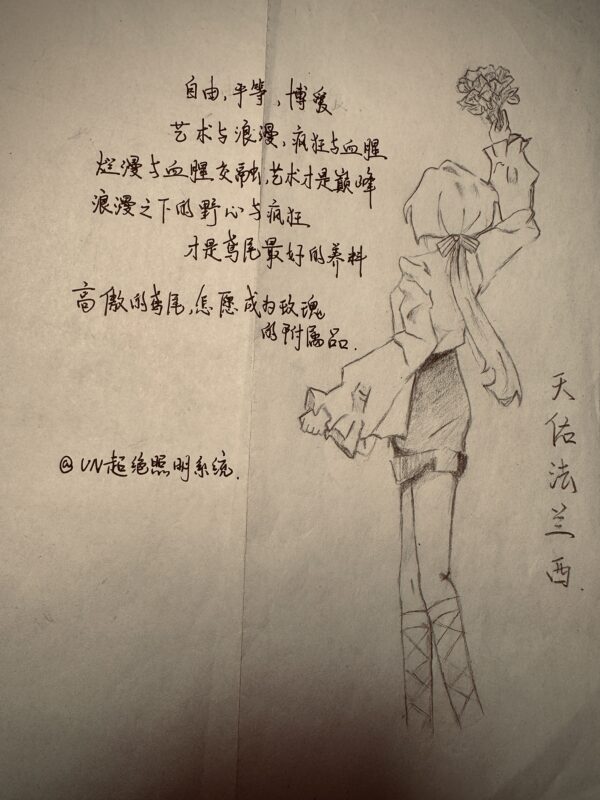 自由,平等,博爱
艺术与浪漫,疯狂与血腥
烂漫与血腥交融,艺术才是巅峰
浪漫之下的野心与疯狂
才是鸢尾最好的养料
高傲的鸢尾,怎愿成为玫瑰
的附属品.
@UN超绝照明系统.
天佑法兰西.